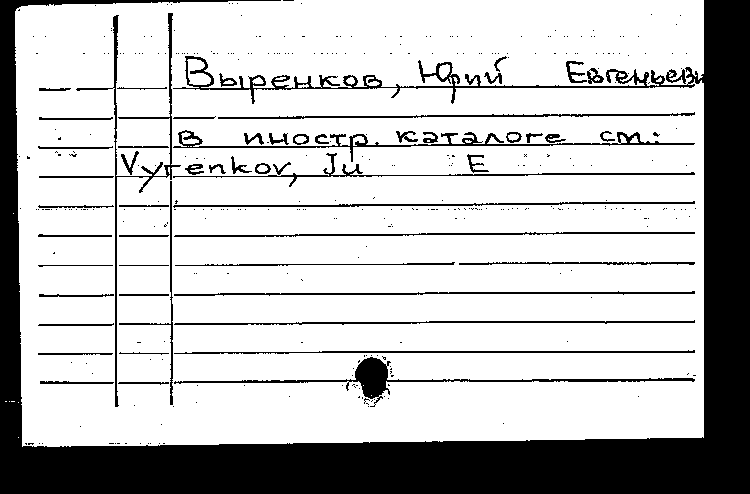 Выренков, Юрий Евгеньеви
в иностр. каталоге см.:
Vyrenkov, Ju E